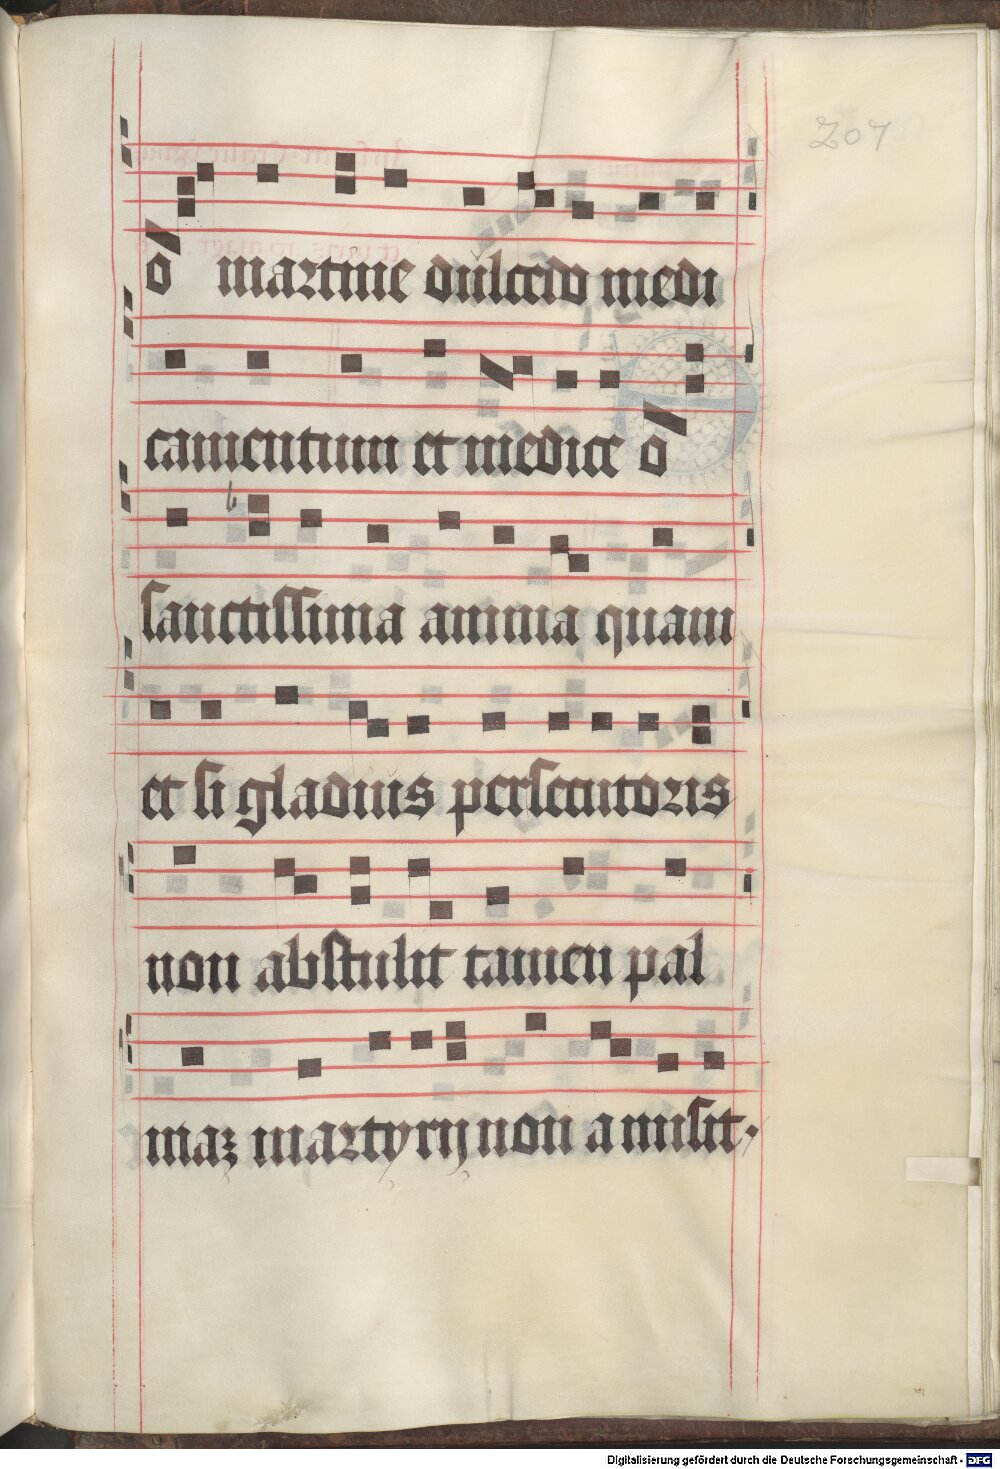 207
o martine dulcedo medi
camentum et medice o
sanctissima anima quam
et si gladius persecutoris
non abstulit tamen pal
maz martyrij non amisit.
Digitalisierung gefördert durch die Deutsche Forschungsgemeinschaft - DFG